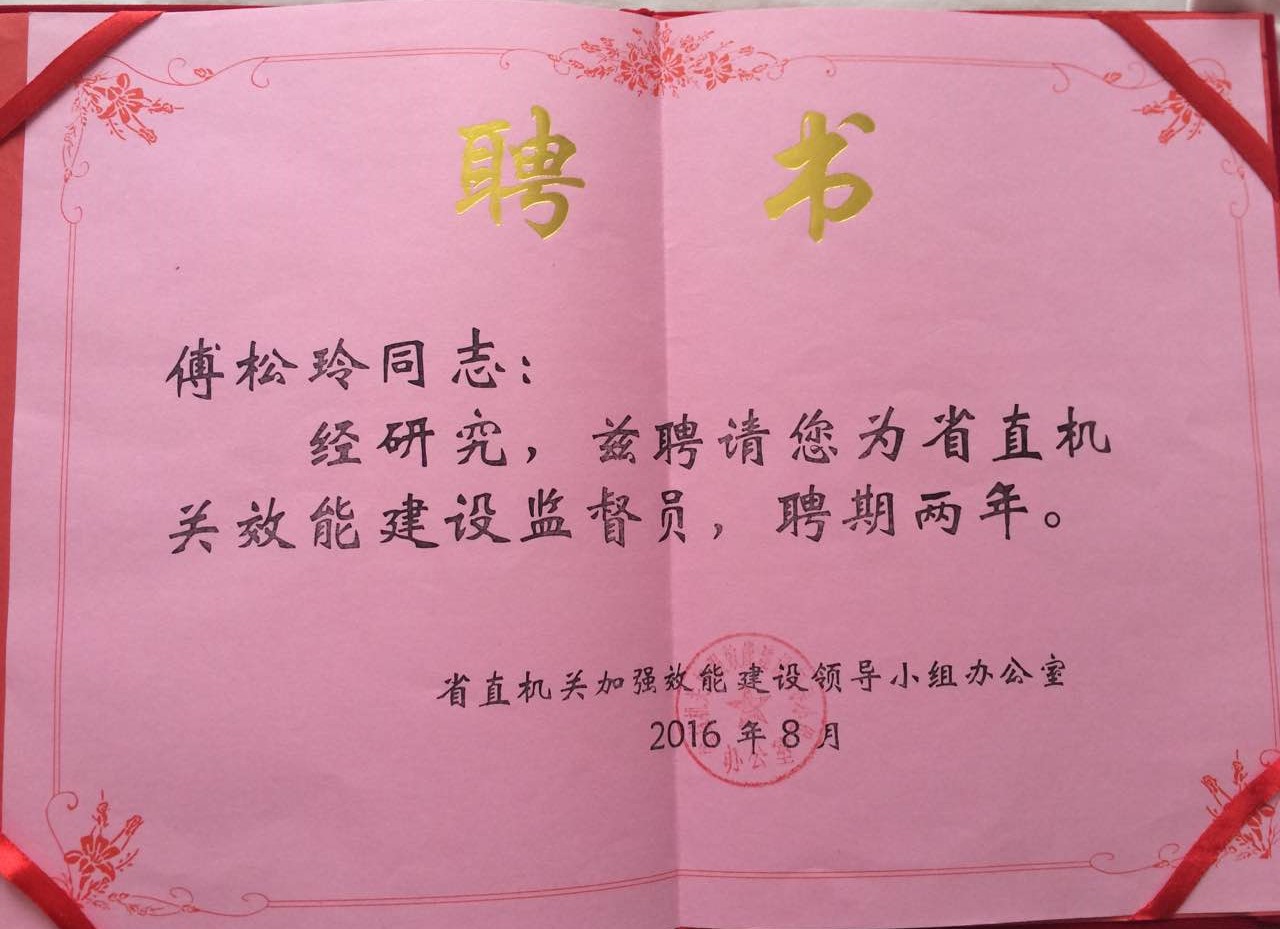 聘书
傅松玲同志：
经研究，兹聘请您为省直机
关效能建设监督员，聘期两年。
省直机关加强效能建设领导小组办公室
2016 年 8 月
办公室